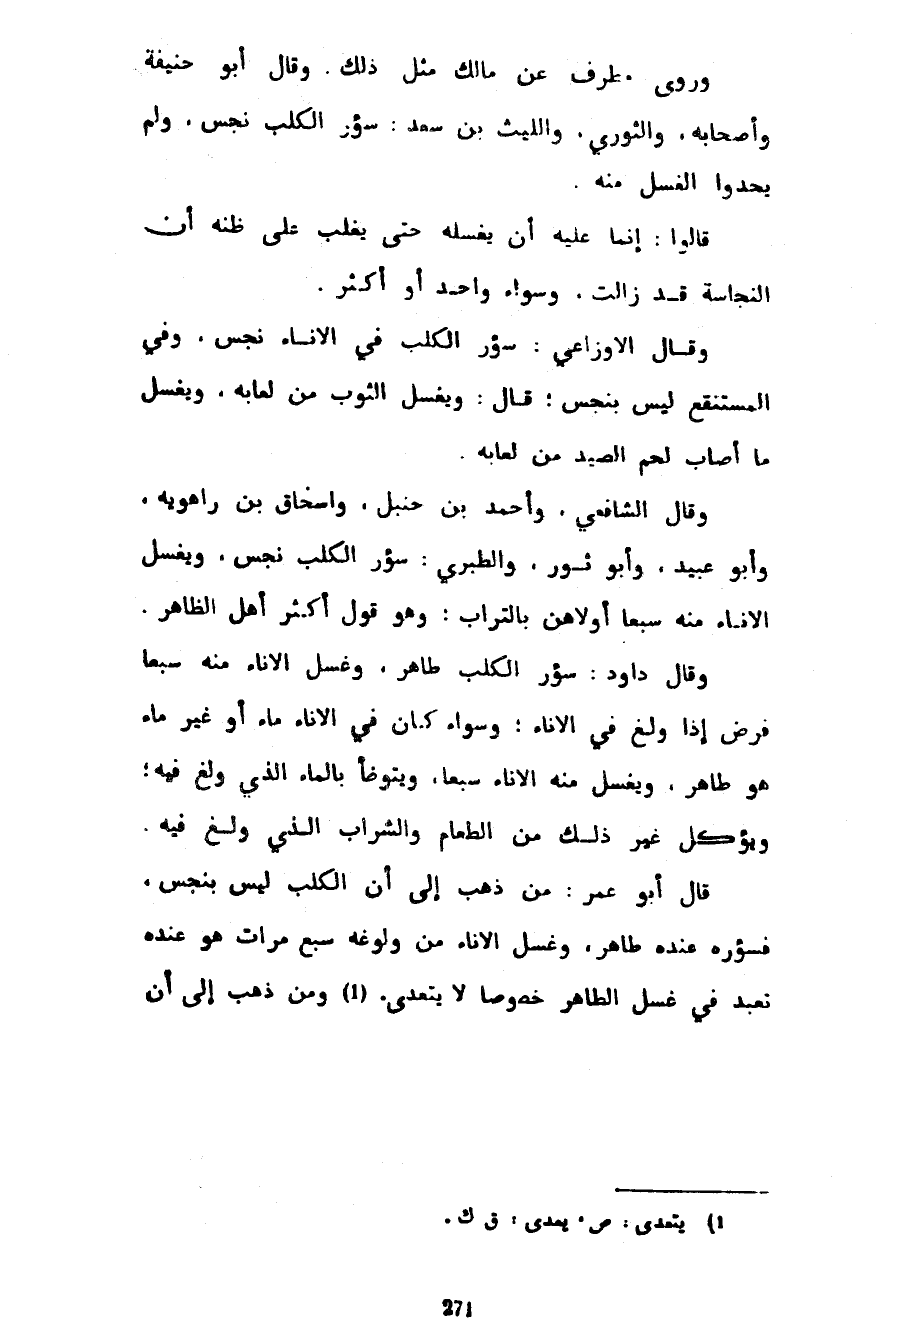 وروى مطرف عن مالك مثل ذلك . وقال أبو حنيفة
وأصحابه ، والثوري ، والليث بن سعد : سؤر الكلب نجس ، ولم
يحدوا الغسل منه .
قالوا : إنما عليه أن يغسله حتى يغلب على ظنه أن
النجاسة قد زالت ، وسواء واحد أو أكثر .
وقال الاوزاعي : سؤر الكلب في الاناء نجس ، وفي
المستنقع ليس بنجس ؛ قال : ويغسل الثوب من لعابه ، ويغسل
ما أصاب لحم الصيد من لعابه .
وقال الشافعي ، وأحمد بن حنبل ، واسحاق بن راهويه ،
وأبو عبيد ، وأبو ثور ، والطبري : سؤر الكلب نجس ، ويغسل
الاناء منه سبعا أولاهن بالتراب : وهو قول أكثر أهل الظاهر .
وقال داود : سؤر الكلب طاهر ، وغسل الاناء منه سبعا
فرض إذا ولغ في الاناء ؛ وسواء كان في الاناء ماء أو غير ماء
هو طاهر ، ويغسل منه الاناء سبعا، ويتوضأ بالماء الذي ولغ فيه؛
ويؤكل غير ذلك من الطعام والشراب الذي ولغ فيه .
قال أبو عمر : من ذهب إلى أن الكلب ليس بنجس ،
فسؤره عنده طاهر، وغسل الاناء من ولوغه سبع مرات هو عنده
تعبد في غسل الطاهر خصوصا لا يتعدى، (1) ومن ذهب إلى أن
1) يتعدى : ص ، يعدى : ق ك .
271